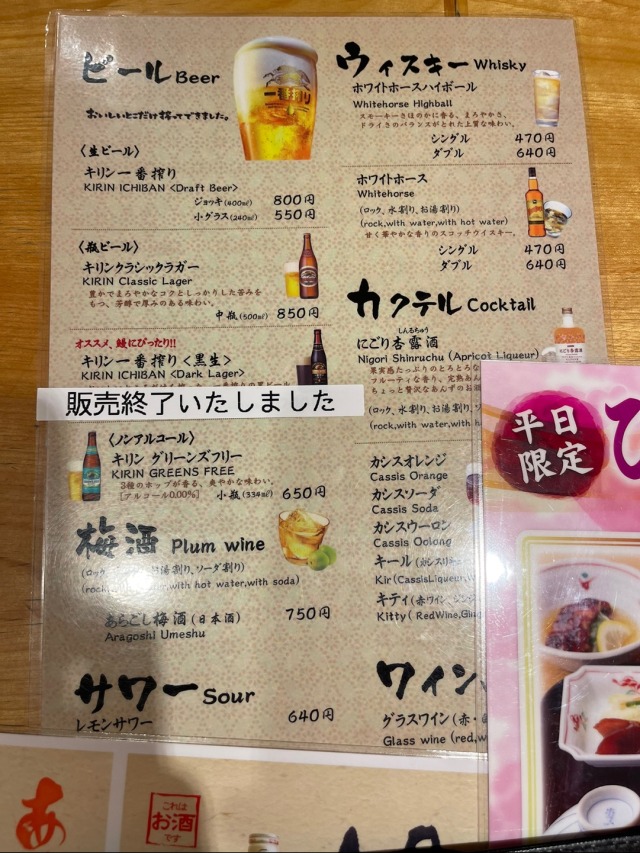 ビール Beer
おいしいとこだけ搾ってできました。
一番搾り
〈生ビール〉
キリン一番搾り
KIRIN ICHIBAN <Draft Beer>
ジョッキ(400㎖) 800円
小グラス(240㎖) 550円
〈瓶ビール〉
キリンクラシックラガー
KIRIN Classic Lager
豊かでまろやかなコクとしっかりした苦みを
もつ、芳醇で厚みのある味わい。
中瓶(500㎖) 850円
オススメ、鰻にぴったり!!
キリン一番搾り〈黒生〉
KIRIN ICHIBAN <Dark Lager>
販売終了いたしました
〈ノンアルコール〉
キリン グリーンズフリー
KIRIN GREENS FREE
3種のホップが香る、爽やかな味わい。
[アルコール0.00%] 小瓶(334㎖) 650円
梅酒 Plum wine
(ロック、 お湯割り、ソーダ割り)
(rock, with hot water,with soda)
あらごし梅酒(日本酒) 750円
Aragoshi Umeshu
サワー Sour
レモンサワー 640円
ウィスキー Whisky
ホワイトホースハイボール
Whitehorse Highball
スモーキーさほのかに香る、まろやかさ、
ドライさのバランスがとれた上質な味わい。
シングル 470円
ダブル 640円
ホワイトホース
Whitehorse
(ロック、水割り、お湯割り)
(rock,with water,with hot water)
甘く華やかな香りのスコッチウイスキー。
シングル 470円
ダブル 640円
カクテル Cocktail
しんるちゅう
にごり杏露酒
Nigori Shinruchu (Apricot Liqueur)
果実感たっぷりのとろとろな
フルーティな香り、完熟あん
ちょっと贅沢なあんずのお
(ロック、水割り、お湯割り、
(rock,with water,with h
カシスオレンジ
Cassis Orange
カシスソーダ
Cassis Soda
カシスウーロン
Cassis Oolong
キール(カシスリ
Kir(CassisLiqueur,w
キティ(赤ワイン、ジン
Kitty( RedWine,Ging
ワイン
グラスワイン(赤・
Glass wine (red,w
平日
限定
ひ
あ
これは
お酒
です